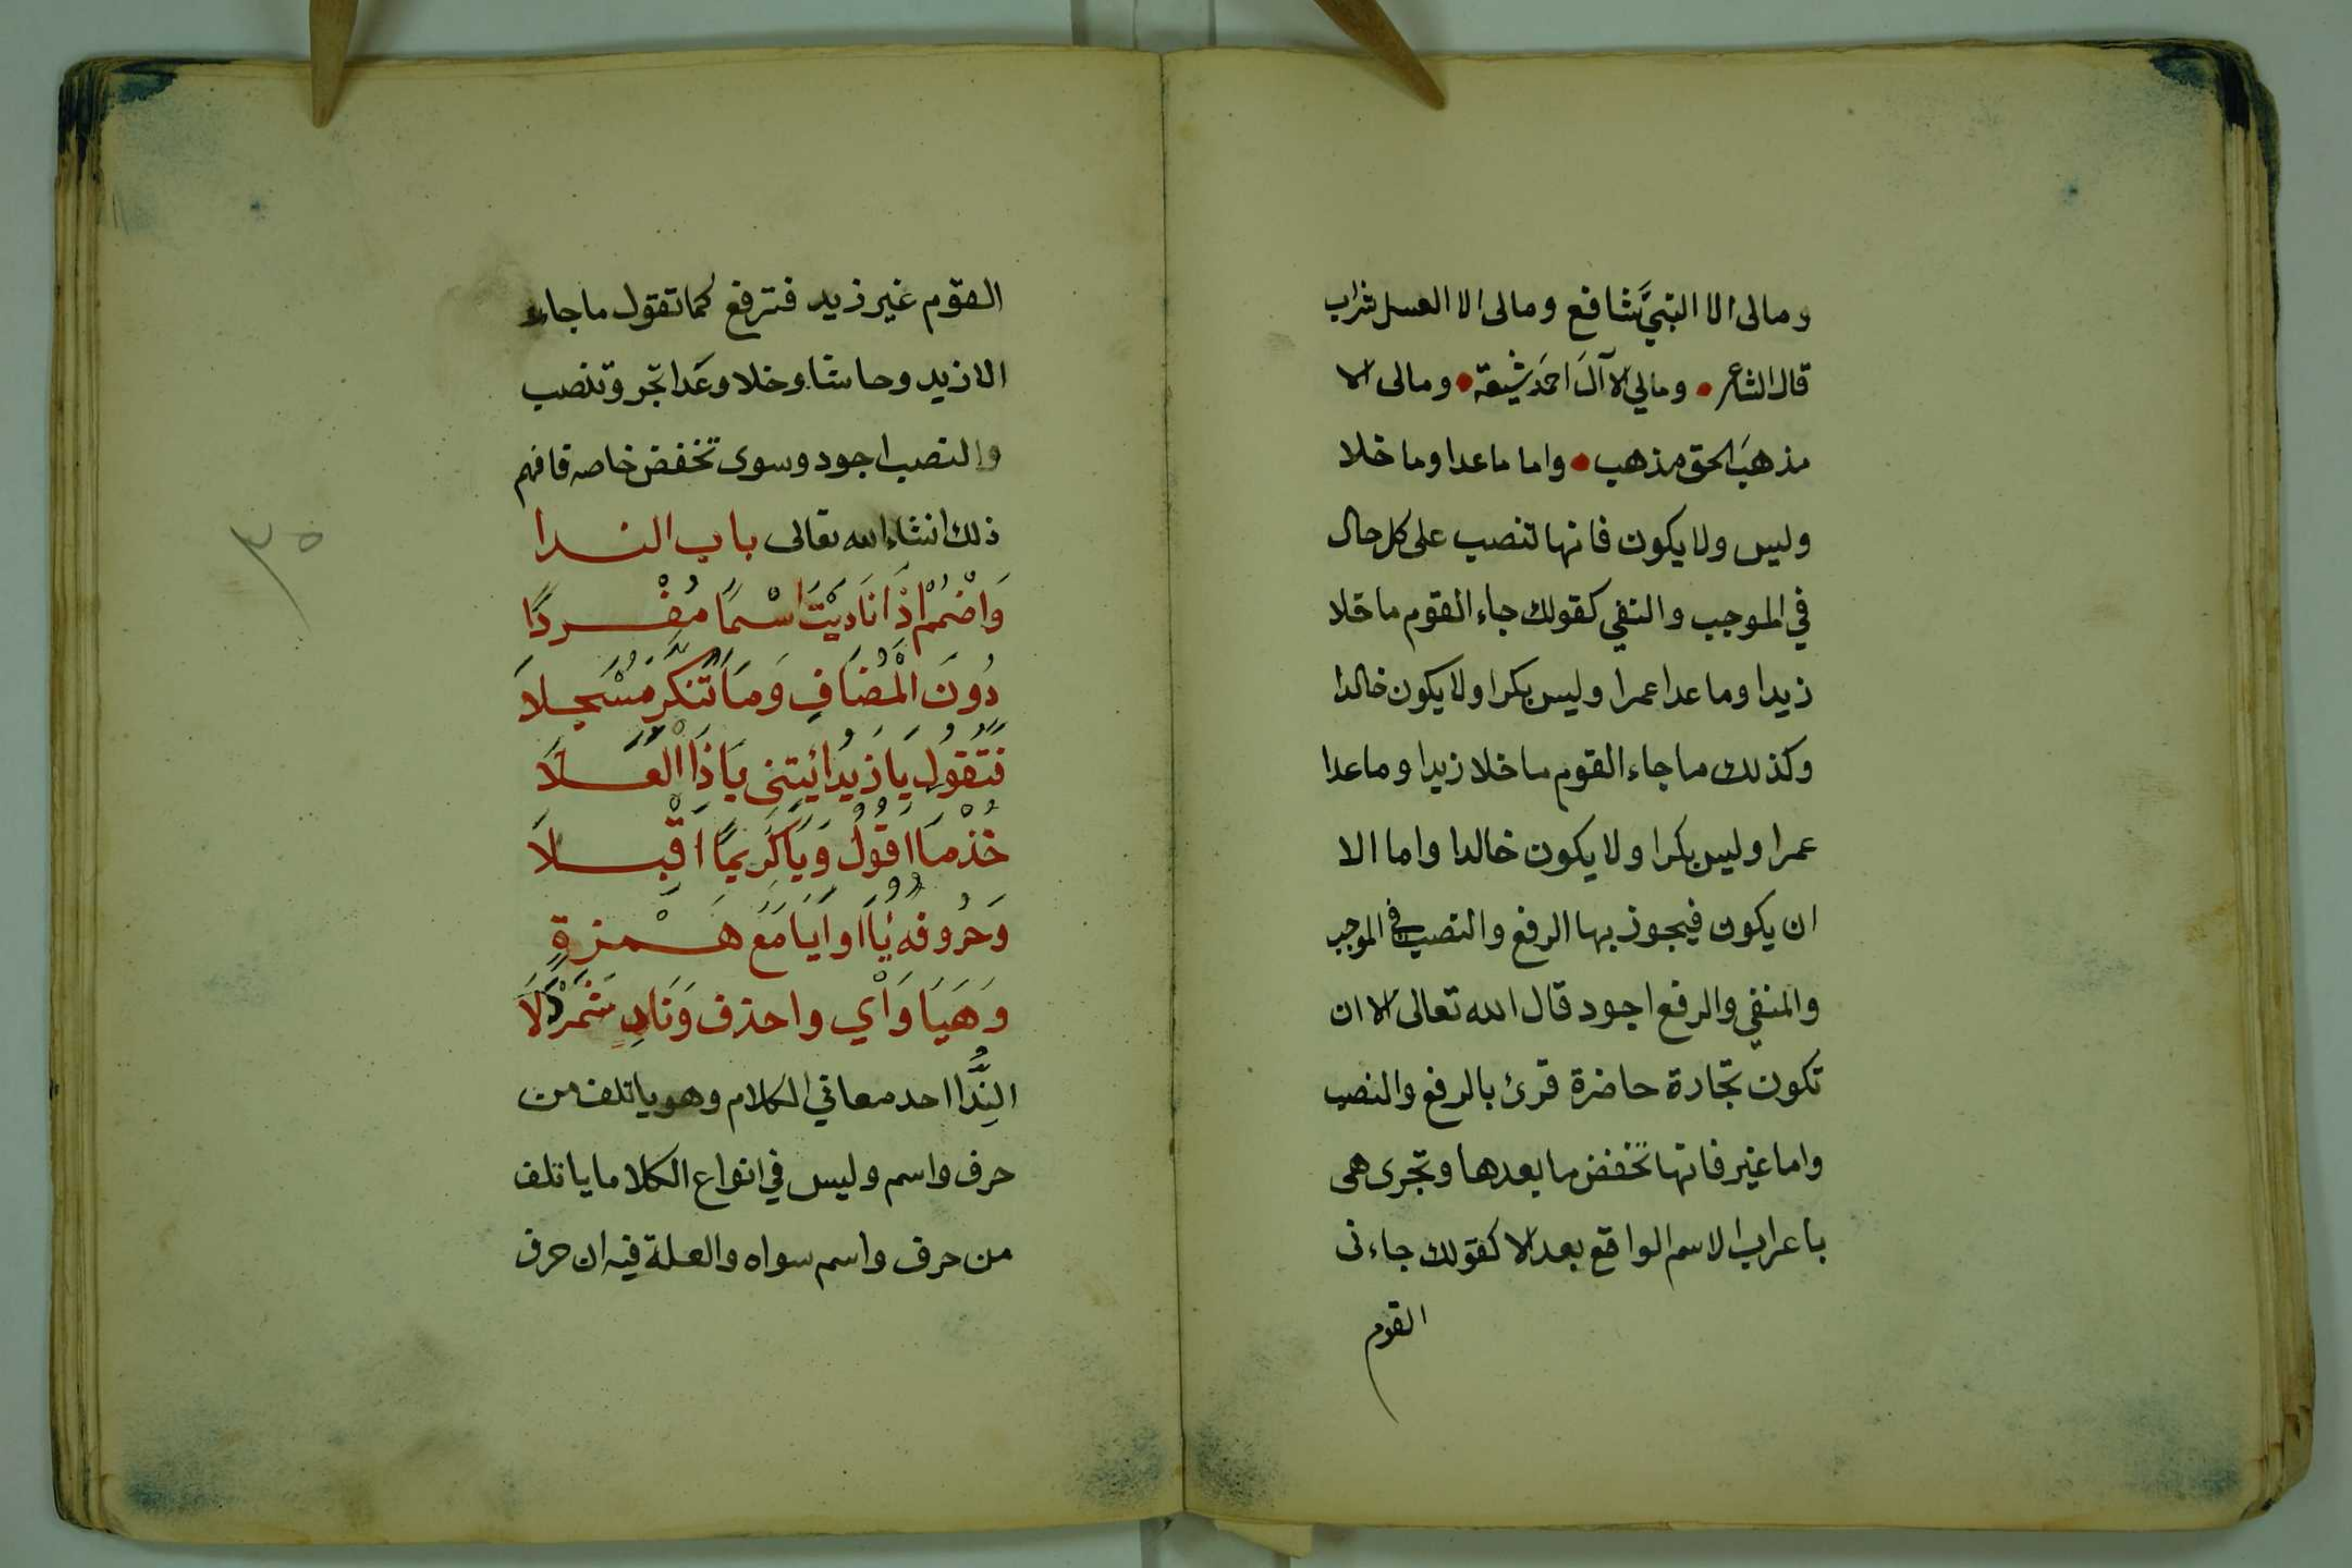 ومالى الا النبيَّ شافع ومالى الا العسل شراب
قال الشاعر • ومالي الا آلَ احمَد شيعة • ومالى الا
مذهبَ الحق مذهب • واما ماعدا وما خلا
وليس ولا يكون فانها تنصب على كل حال
في الموجب والنفي كقولك جاء القوم ما خلا
زيدا وما عدا عمرا وليس بكرا ولا يكون خالدا
وكذلك ما جاء القوم ما خلا زيدا وما عدا
عمرا وليس بكرا ولا يكون خالدا واما الا
ان يكون فيجوز بها الرفع والنصب في الموجب
والمنفي والرفع اجود قال الله تعالى الا ان
تكون تجارة حاضرة قرئ بالرفع والنصب
واما غير فانها تخفض ما بعدها وتجرى هى
باعراب الاسم الواقع بعد الا كقولك جاءنى
القوم
القوم غير زيد فترفع كما تقول ما جاء
الا زيد وحاشا وخلا وعَدا تجر وتنصب
والنصب اجود وسوى تخفض خاصه فافهم
ذلك انشاء الله تعالى باب الندا
وَاضْمُمْ اِذَا نَادَيْتَ اسْمًا مُفْرَدًا
دُونَ الْمُضَافِ وَمَا تُنَكِّرُ مُسْجَلاَ
فَتَقُولُ يَا زَيْدُ ائْتِنى يَا ذَا الْعُلَا
خُذْ مَا اَقُولُ وَيَا كَرِيمًا اَقْبِلاَ
وَحُرُوفُهُ يَا اَوْ اَيَا مَعَ هَمْزَةٍ
وَهَيَا وَاَيْ واحذف وَنَادِ شَمَرْدَلاَ
النِّدَا احد معاني الكلام وهو ياتلف من
حرف واسم وليس في انواع الكلام ما ياتلف
من حرف واسم سواه والعلة فيه ان حرف
٣٥